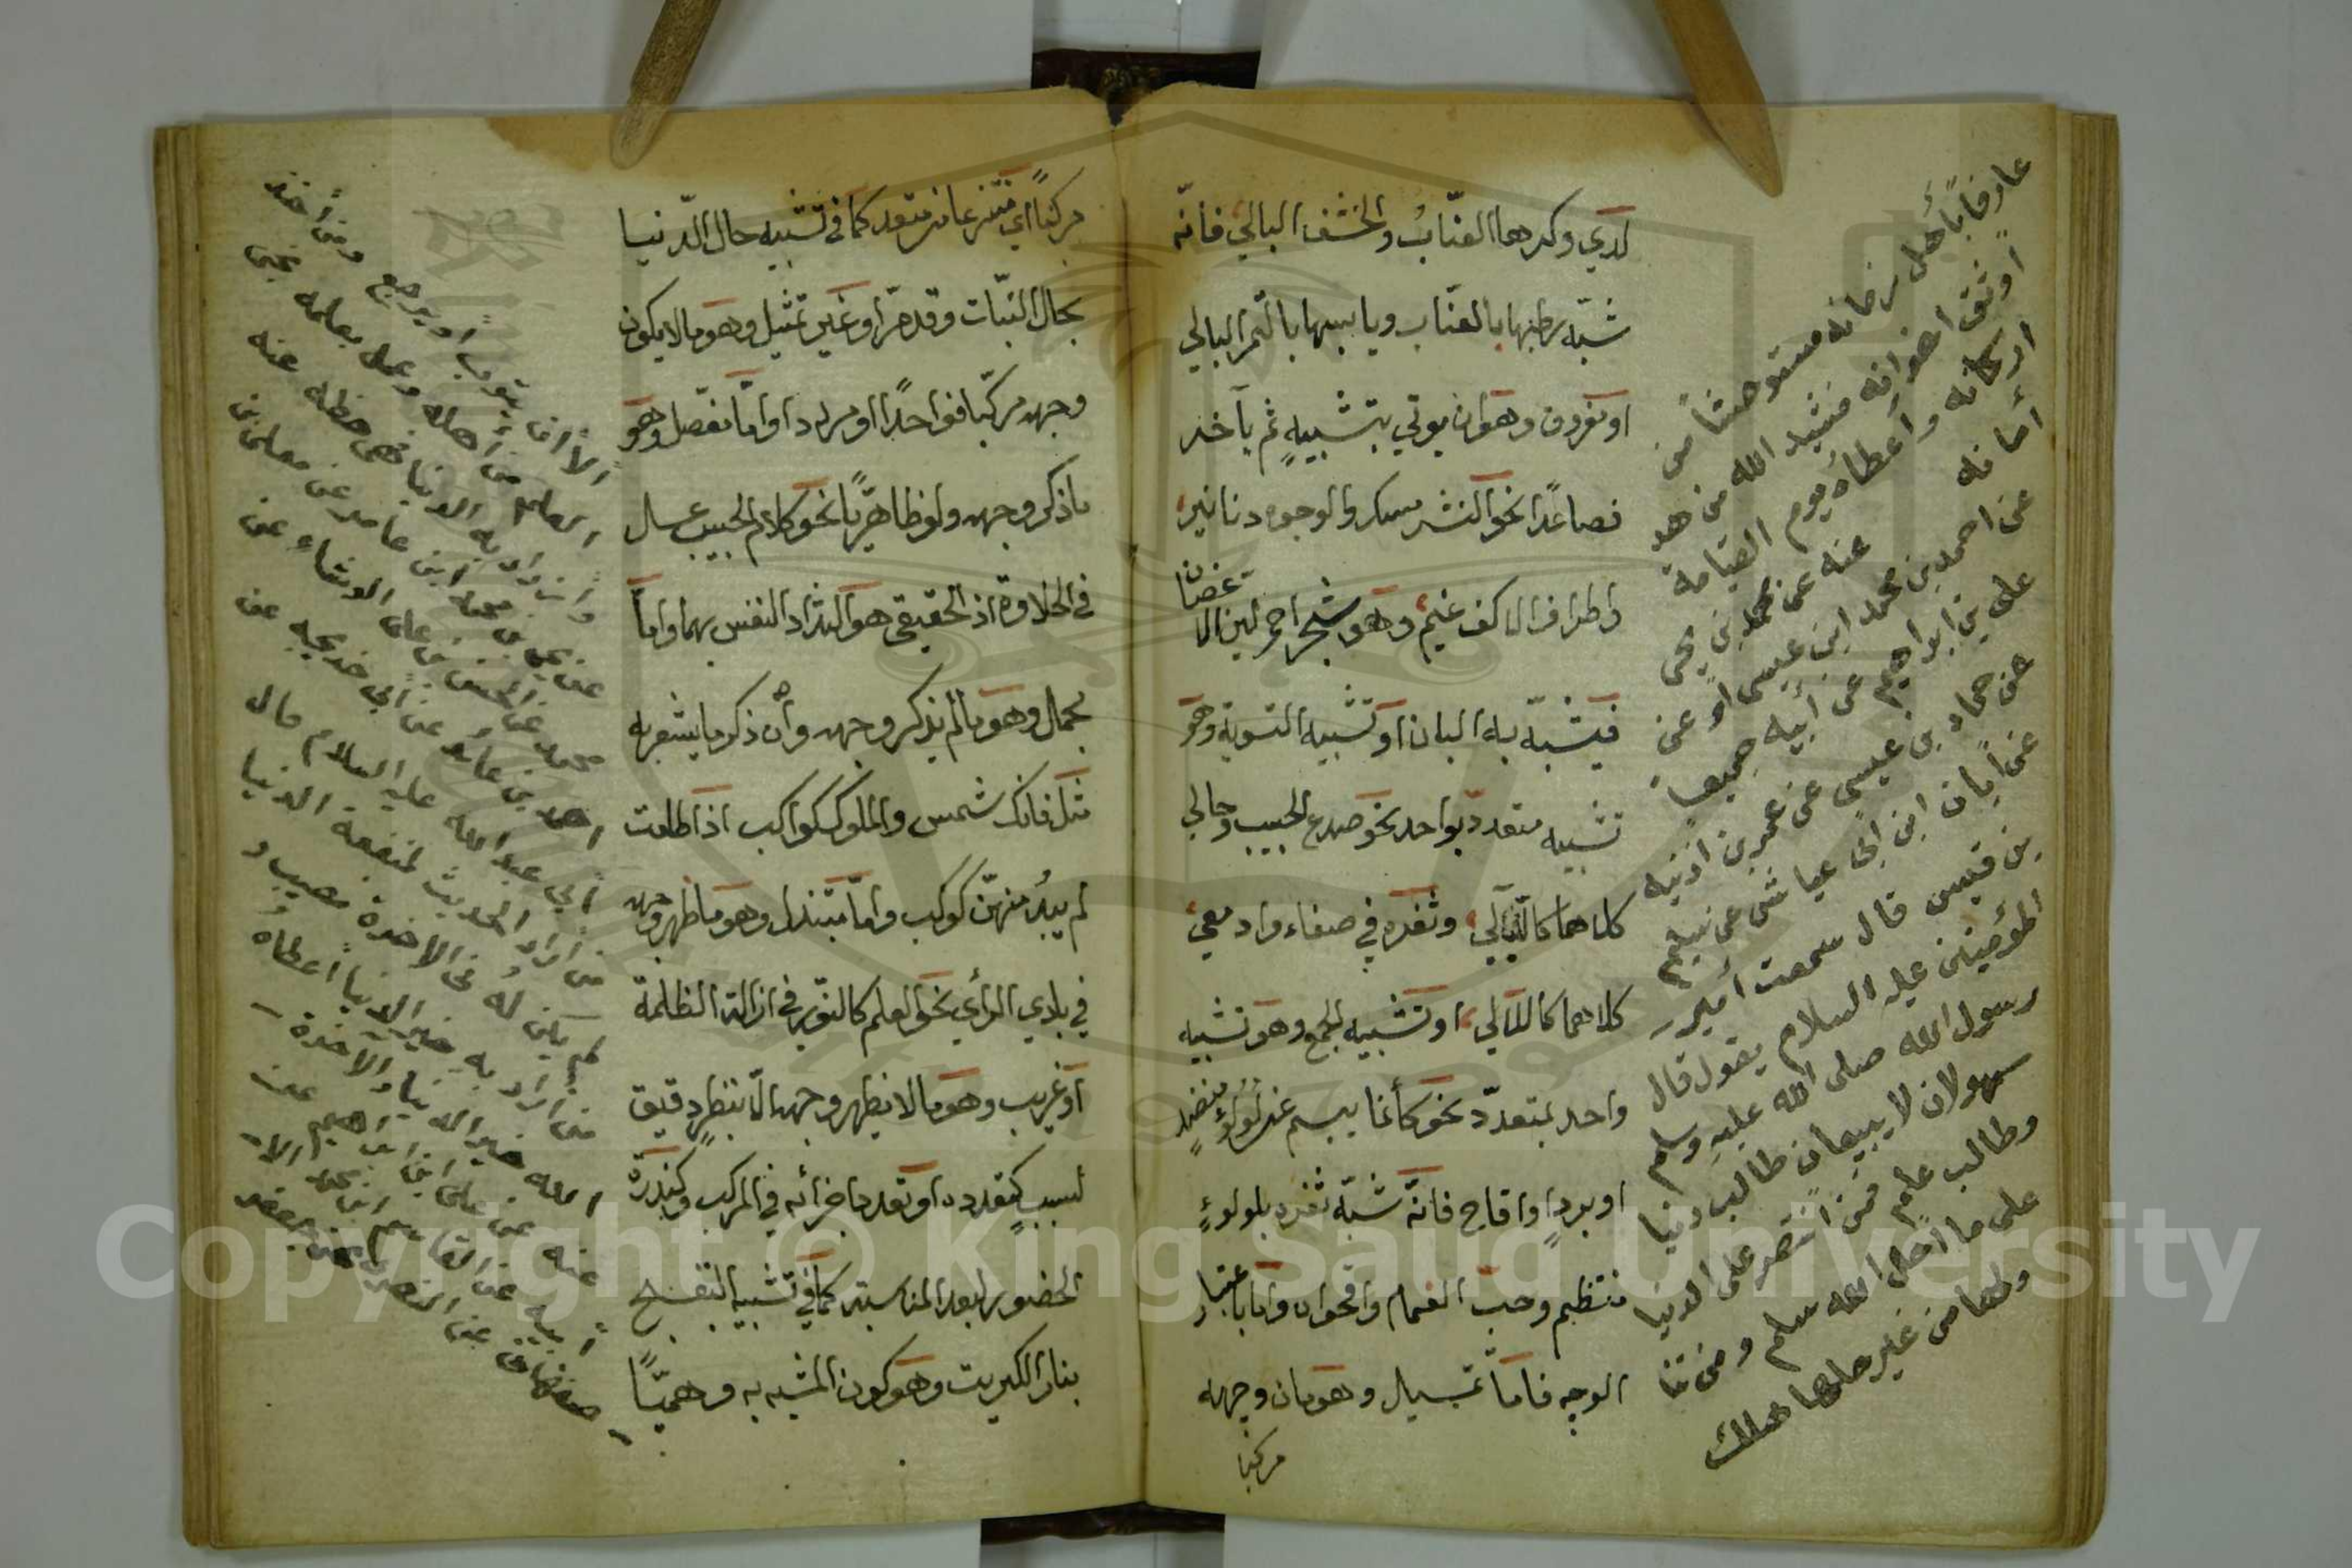 لدي وكرها العنّاب والخشف البالي فانّه
شبّه رطبها بالعنّاب ويابسها بالتمر البالي
او مفروق وهو ان يوتي بتشبيهٍ ثم بآخر
فصاعدًا نحو النشر مسك والوجوه دنانير
واطراف الاكف عنم وهو شجر احمر لين الا
غصان
فيشبّه به البنان او تشبيه التسوية وهو
تشبيه متعدد بواحد نحو صدغ الحبيب وحالي
كلاهما كالليالي وثغره في صفاء وادمعي
كلاهما كاللآلي او تشبيه الجمع وهو تشبيه
واحد بمتعدّد نحو كأنما يبسم عن لؤلؤ منضدٍ
او بردٍ او اقاح فانّه شبّه ثغره بلولوءٍ
منتظم وحبّ الغمام واقحوان وامّا باعتبار
الوجه فامّا تمسيل وهو مان وجهه
مركبا
عارفًا بأهل زمانه مستوحشًا من
اوثق اخوانه فشيد الله من هذ
اركانه واعطاه يوم القيامة
أمانه
عنه عن محمد بن يحيى
عن احمد بن محمد ابن عيسى او عن
علي بن ابراهيم عن أبيه جميعا
عن حماد بن عيسى عن عمر بن اذنيه
عن أبان ابن ابي عياش عن سليم
بن قيس قال سمعت أمير
المؤمنين عليه السلام يقول قال
رسول الله صلى الله عليه وسلم
منهومان لا يشبعان طالب دنيا
وطالب علم فمن اقتصر على الدنيا
على ما احل الله سلم ومن تنا
ولها من غير حلها هلك
مركبًا اي منتزعا من متعدد كما في تشبيه حال الدّنيا
بحال النبّات وقد مرّ او غير تمثيل وهو ما لا يكون
وجهه مركّبا فواحدًا او مراددا وامّا مفصل وهو
ما ذكر وجهه ولو ظاهريًّا نحو كلام الحبيب عسل
في الحلاوة اذ الحقيقي هو التذاد النفس بهما وامّا
مجمل وهو ما لم يذكر وجهه وأن ذكر ما يشعر به
مثل فانك شمس والملوك كواكب اذا طلعت
لم يبدُ منهنّ كوكب وامّا مبتذل وهو ما ظهر وجهه
في بادي الرأي نحو العلم كالنّور في ازالة الظلمة
او غريب وهو ما لا يظهر وجهه الّا بنظرٍ دقيق
لسببٍ كتعدده او تعدد اجزائه في المركب وكندرة
الحضور لبعد المناسبة كما في تشبيه البنفسج
بنار الكبريت وهو كون المشبه به وهميّا
الّا ان يتوب أو يرجع ومن أخذ
العلم من أهله وعمل بعلمه نجى
ومن اراد به الدنيا فهي حظه عنه
عن الحسن بن محمد ابن عامر عن معلى بن
محمد عن الحسن بن على الوشاء عن
احمد بن عائد عن أبي خديجه عن
أبي عبد الله عليه السلام قال
من أراد الحديث لمنفعة الدنيا
لم يكن له في الآخرة نصيب و
من أراد به خير الدنيا أعطاه
الله خير الدنيا والآخرة
عنه عن علي ابن ابراهيم عن
أبيه عن القاسم ابن محمد الا
صفهاني عن المنقري عن حفص